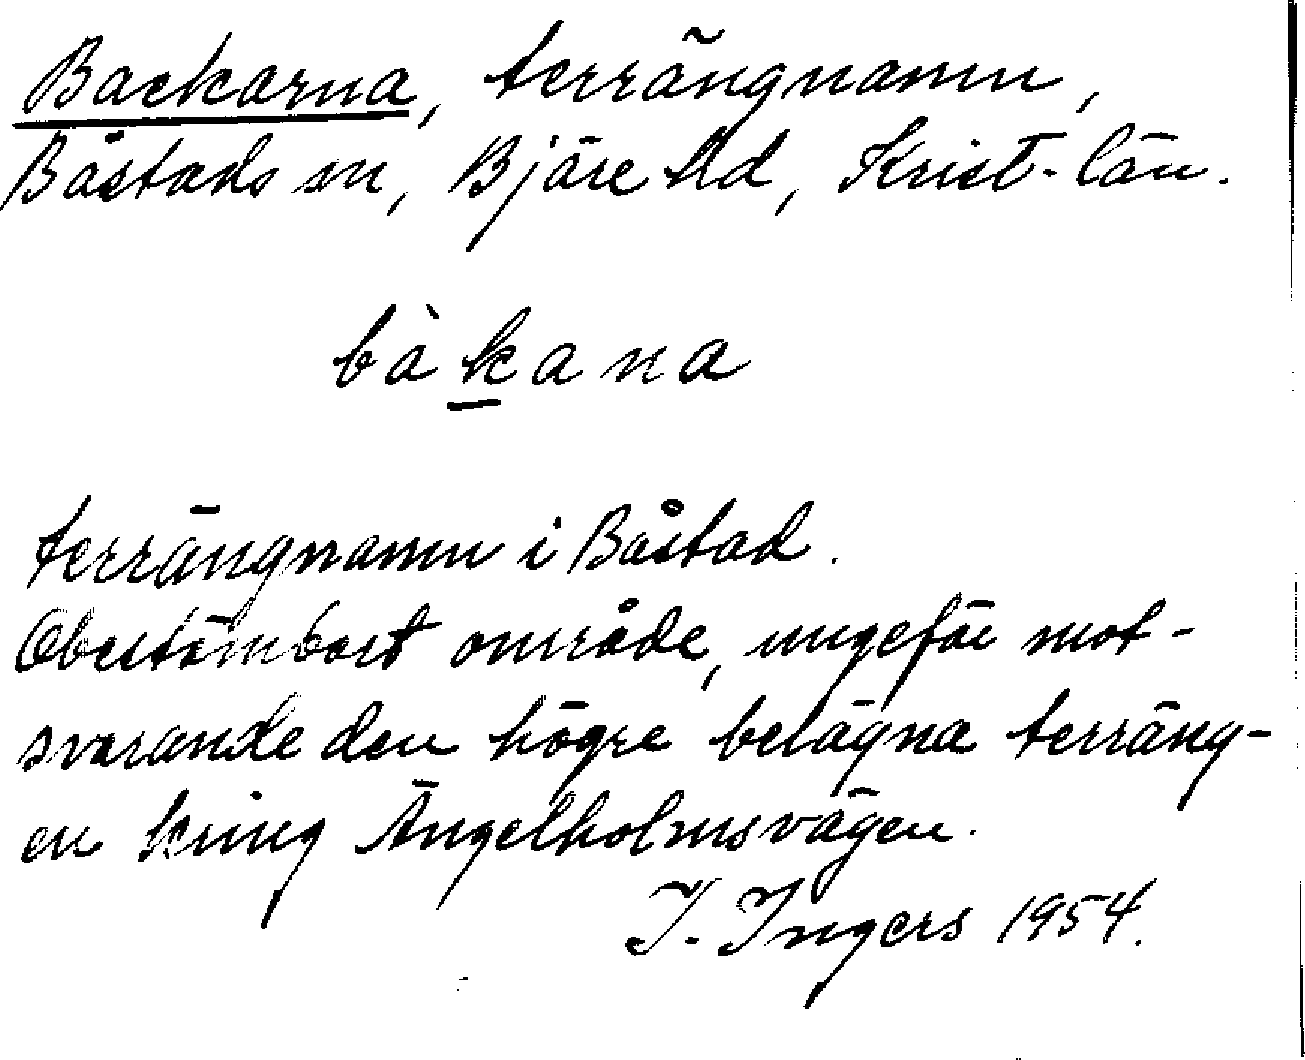 Backarna, terrängnamn,
Båstads sn, Bjäre hd, Krist. län.
bàkana
terrängnamn i Båstad.
Obestämbart område, ungefär mot-
svarande den högre belägna terräng-
en kring Ängelholmsvägen.
I. Ingers 1954.